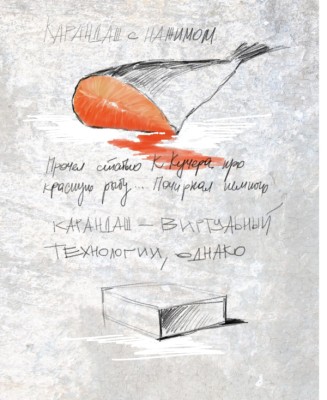 КАРАНДАШ с НАЖИМОМ
Прочел статью К. Кучера про
красную рыбу... Почиркал немного
КАРАНДАШ – ВИРТУАЛЬНЫЙ
ТЕХНОЛОГИИ, ОДНАКО